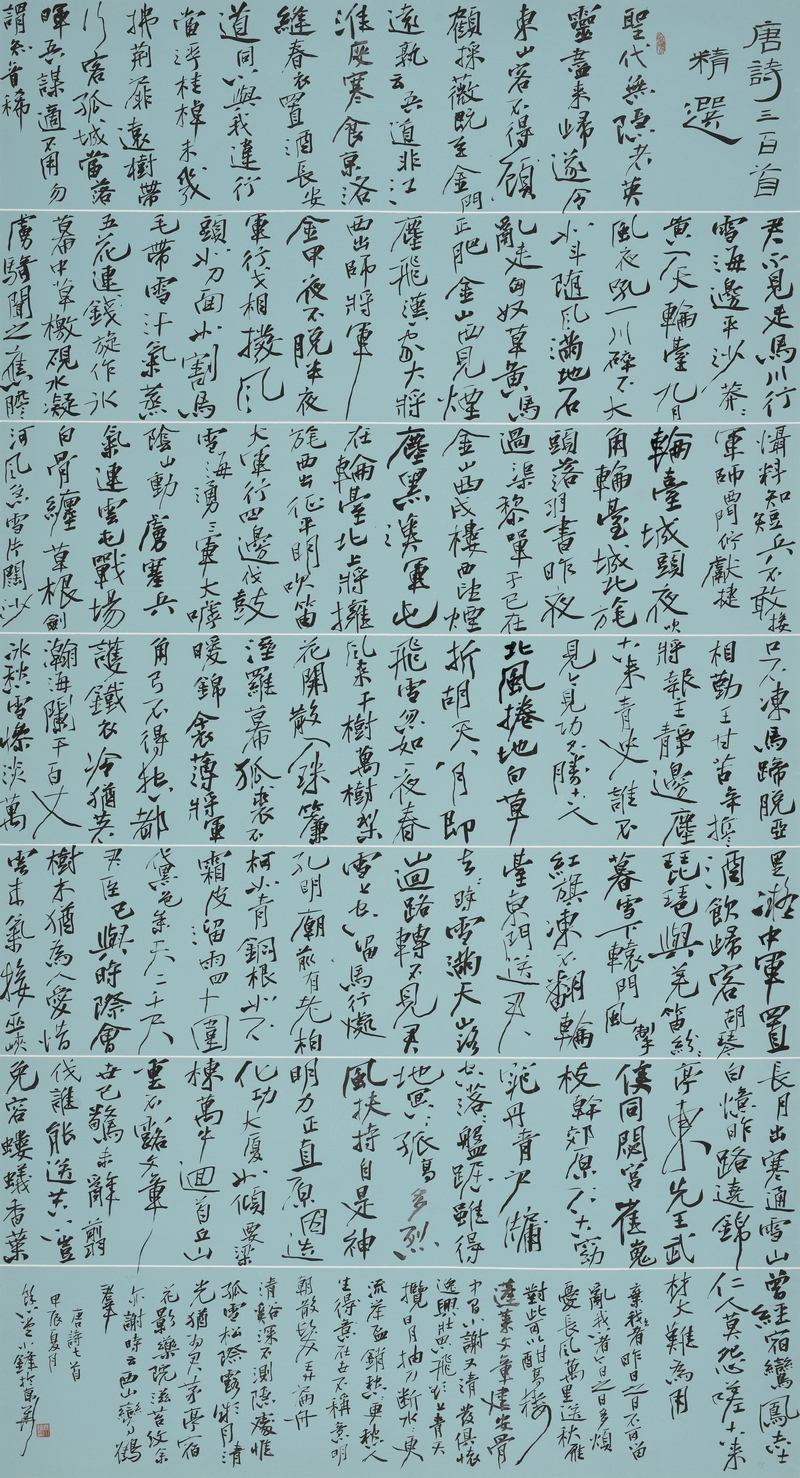 唐詩三百首
精選
聖代無隱者英
靈盡來歸遂令
東山客不得顧
顧採薇既至金門
遠孰云吾道非江
淮度寒食京洛
縫春衣置酒長安
道同心與我違行
當浮桂棹未幾
拂荆扉遠樹帶
行客孤城當落
暉吾謀適不用勿
謂知音稀
君不見走馬川行
雪海邊平沙莽々
黃入天輪臺九月
風夜吼一川碎石大
如斗隨風滿地石
亂走匈奴草黃馬
正肥金山西見煙
塵飛漢家大將
西出師將軍
金甲夜不脫半夜
軍行戈相撥風
頭如刀面如割馬
毛帶雪汗氣蒸
五花連錢旋作冰
幕中草檄硯水凝
虜騎聞之應膽
懾料知短兵不敢接
軍師西門佇獻捷
輪臺城頭夜吹
角輪臺城北旄
頭落羽書昨夜
過渠黎單于已在
金山西戍樓西望煙
塵黑漢軍屯
在輪臺北上將擁
旄西出征平明吹笛
大軍行四邊伐鼓
雪海湧三軍大呼
陰山動虜塞兵
氣連雲屯戰場
白骨纏草根劍
河風急雪片闊沙
口石凍馬蹄脫亞
相勤王甘苦辛誓
將報主靜邊塵
古來青史誰不
見今見功名勝古人
北風捲地白草
折胡天八月即
飛雪忽如一夜春
風來千樹萬樹梨
花開散入珠簾
溼羅幕狐裘不
暖錦衾薄將軍
角弓不得控都
護鐵衣冷猶著
瀚海闌干百丈
冰愁雲慘淡萬
里凝中軍置
酒飲歸客胡琴
琵琶與羌笛紛々
暮雪下轅門風掣
紅旗凍不翻輪
臺東門送君
去時雪滿天山路
山迴路轉不見君
雪上空留馬行處
孔明廟前有老柏
柯如青銅根如石
霜皮溜雨四十圍
黛色參天二千尺
君臣已與時際會
樹木猶為人愛惜
雲來氣接巫峽
長月出寒通雪山
白憶昨路遶錦
亭東先王武
侯同閟宮崔嵬
枝幹郊原古窈
窕丹青戶牖
空落落盤踞雖得
地冥冥孤高多烈
風扶持自是神
明力正直原因造
化功大廈如傾要梁
棟萬牛迴首丘山
重不露文章
世已驚未辭翦
伐誰能送苦心豈
免容螻蟻香葉
曾經宿鸞鳳志士
仁人莫怨嗟古來
材大難為用
棄我者昨日之日不可留
亂我者今日之日多煩
憂長風萬里送秋雁
對此可以酣高樓
蓬萊文章建安骨
中間小謝又清發俱懷
逸興壯思飛欲上青天
攬日月抽刀斷水水更
流舉盃銷愁愁更愁人
生在世不稱意明
朝散髮弄扁舟
清谿深不測隱處惟
孤雲松際露微月清
光猶為君茅亭宿
花影藥院滋苔紋余
亦謝時去西山鸞鶴
羣
唐詩七首
甲辰夏月